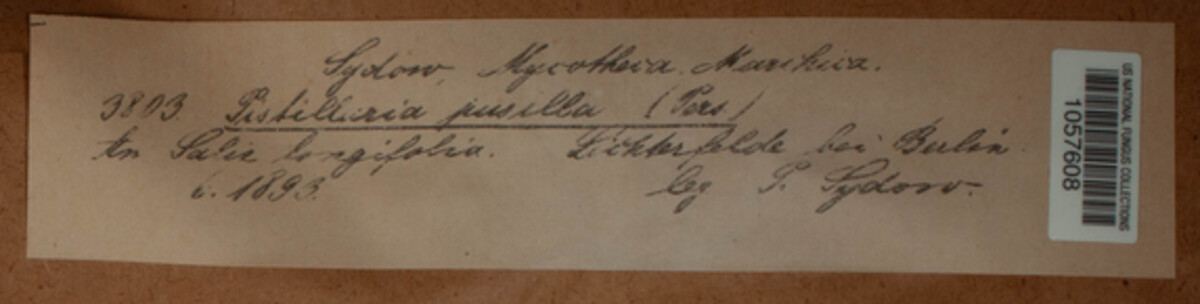 Sydow, Mycotheca Marchica.
3803. Pistillaria pusilla (Pers)
An Salix longifolia. Lichterfelde bei Berlin.
6. 1893. leg P. Sydow.
US NATIONAL FUNGUS COLLECTIONS
1057608